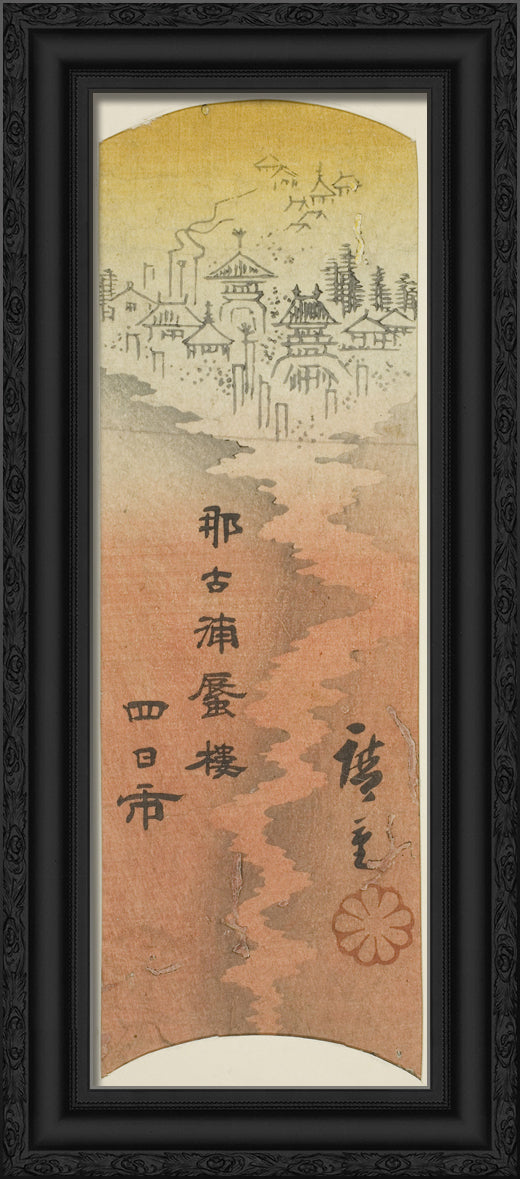 那古浦蜃楼
四日市
廣重